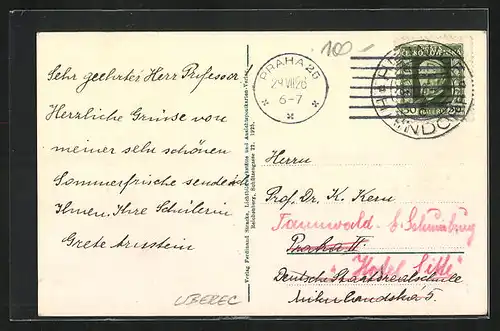 Sehr geehrter Herr Professor!
Herrliche Grüsse von
meiner sehr schönen
Sommerfrische sendet
Ihnen Ihre Schülerin
Grete
LIBEREC
Verlag Ferdinand Stracke, Lichtbildwerkstätte und Ansichtspostkarten-Verlag
Reichenberg, Schützengasse 23. 1925.
100-
PRAHA 25
29 VII 26
6-7
Herrn
Prof. Dr. K. Kern
Tannwald
Praha II.
"Hotel
Deutsche Staatsrealschule
5.